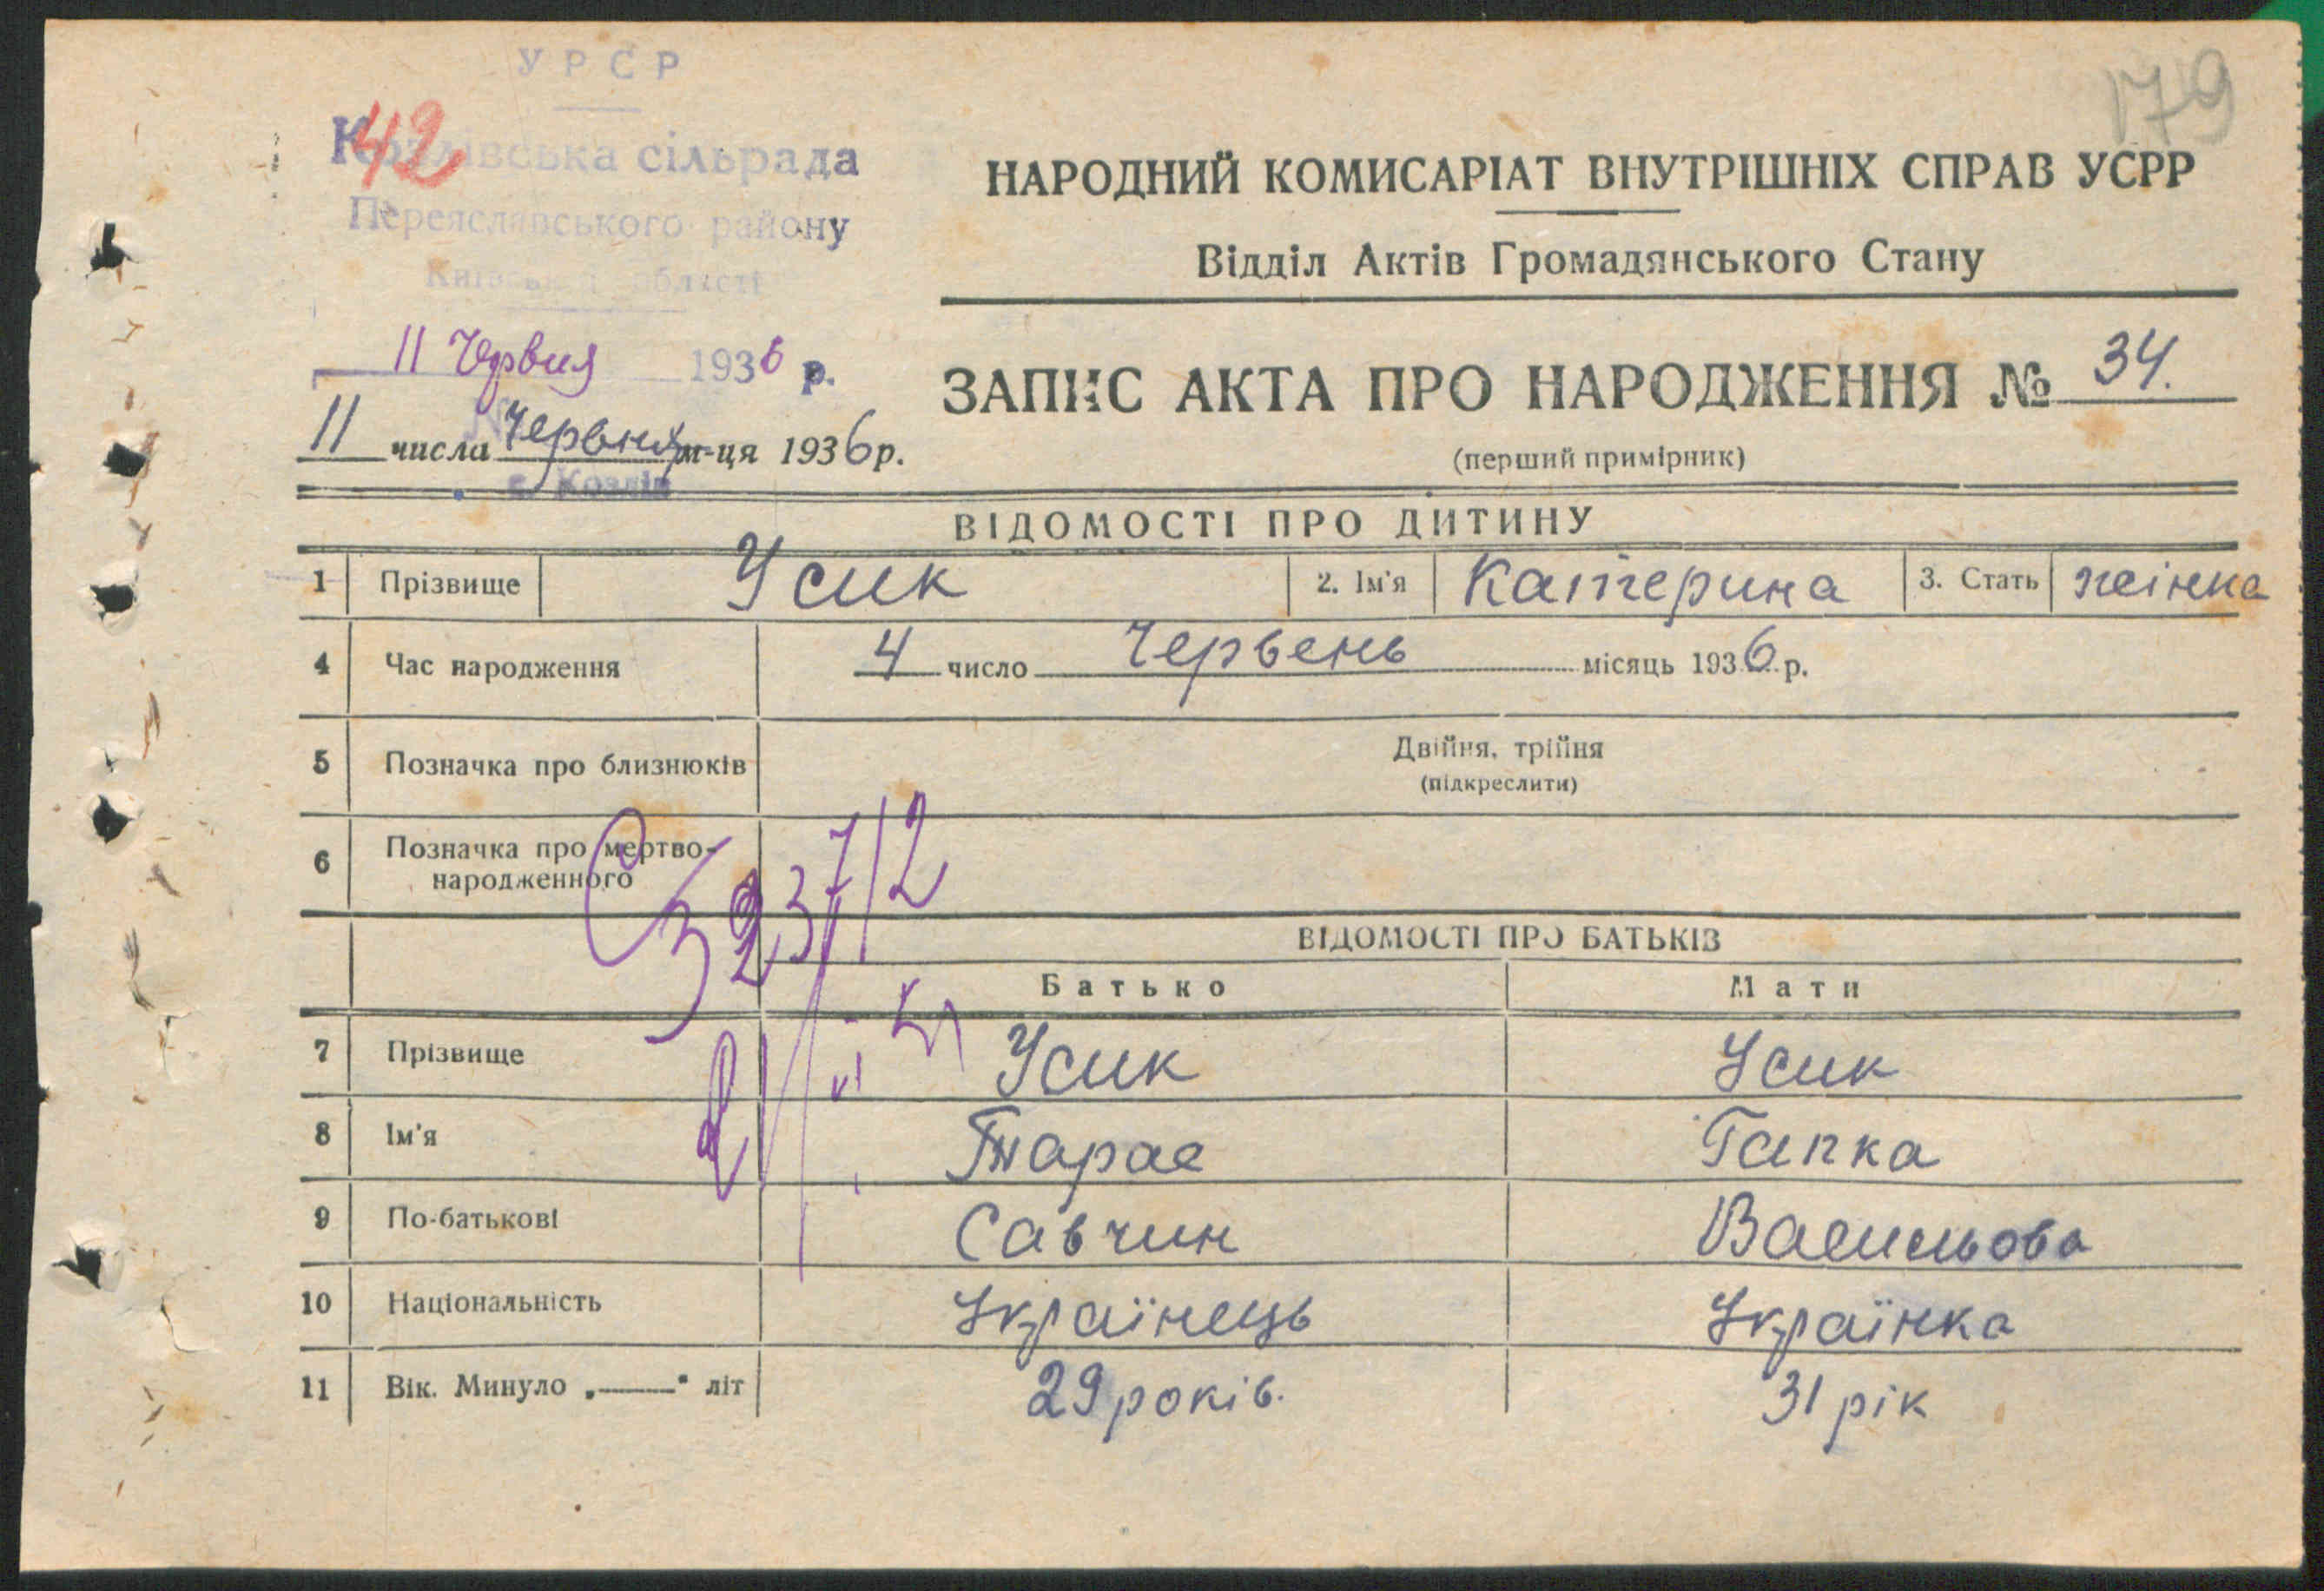 УРСР
179
42
Козлівська сільрада
Переяславського району
Київської області
НАРОДНИЙ КОМИСАРІАТ ВНУТРІШНІХ СПРАВ УСРР
Відділ Актів Громадянського Стану
11 Червня 1936 р.
11 числа Червня м-ця 1936 р.
с. Козлів
ЗАПИС АКТА ПРО НАРОДЖЕННЯ № 34.
(перший примірник)
ВІДОМОСТІ ПРО ДИТИНУ
1 Прізвище Усик 2. Ім'я Катерина 3. Стать жінка
4 Час народження 4 число Червень місяць 1936 р.
5 Позначка про близнюків Двійня, трійня
(підкреслити)
6 Позначка про мертво-
народженного
ВІДОМОСТІ ПРО БАТЬКІВ
Батько Мати
7 Прізвище Усик Усик
8 Ім'я Тарас Гапка
9 По-батькові Савчин Васильова
10 Національність Українець Українка
11 Вік. Минуло „——" літ 29 років. 31 рік